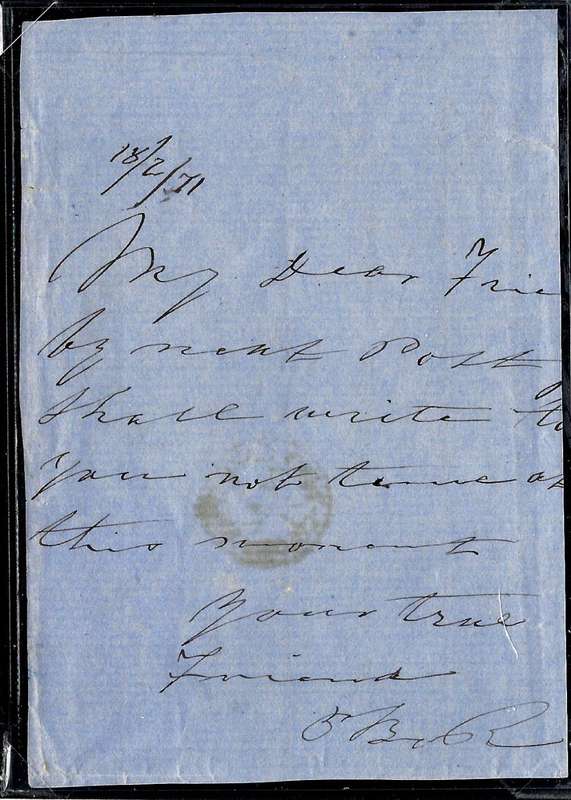 18/2/71
My Dear Frie
by next Post
shall write to
you not time at
this moment
Your true
Friend